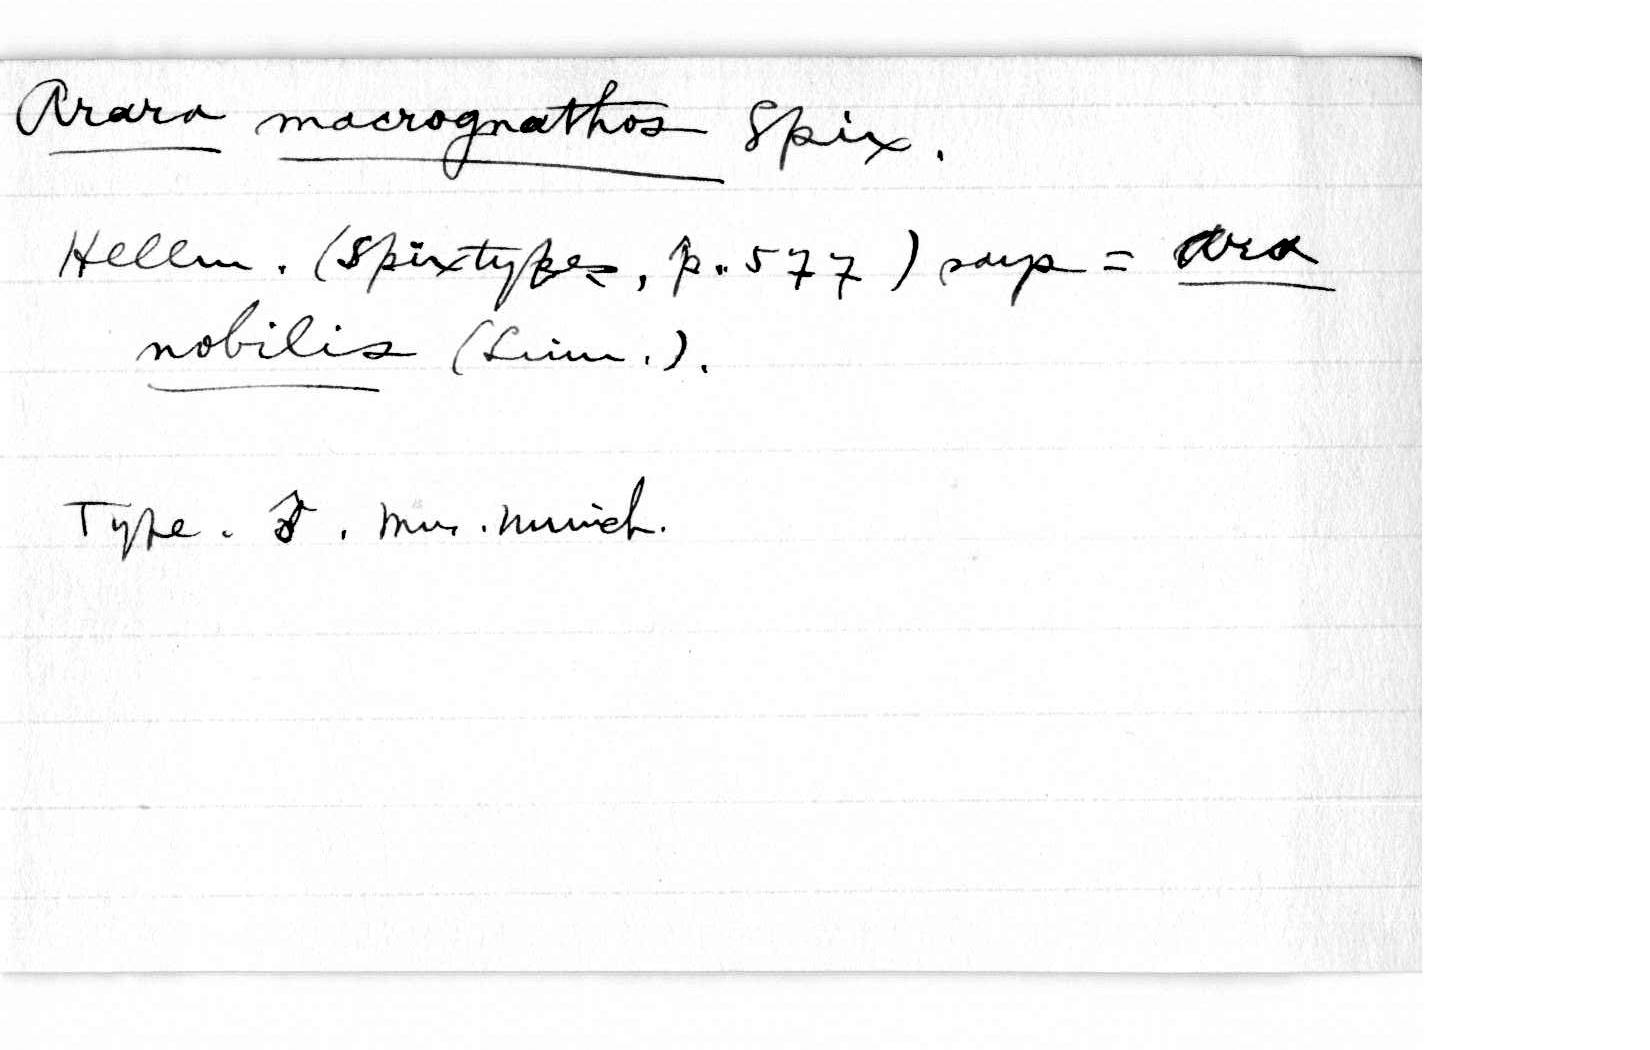 Arara macrognathos Spix.
Hellm. (Spixtypes, p. 577) says = Ara
nobilis (Linn.).
Type. ♂. Mus. Munich.